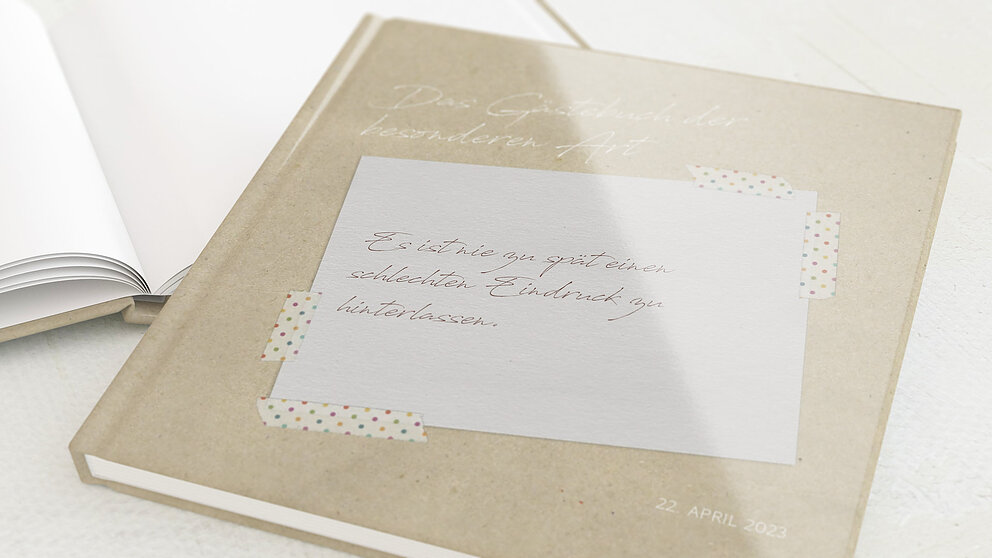 Das Gästebuch der
besonderen Art
Es ist nie zu spät einen
schlechten Eindruck zu
hinterlassen.
22. APRIL 2023